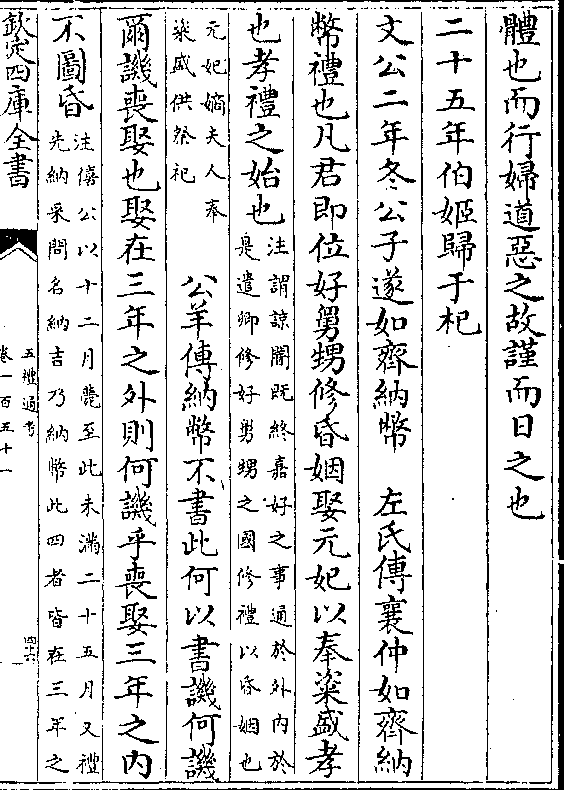 體也而行婦道惡之故謹而日之也
二十五年伯姬歸于杞
文公二年冬公子遂如齊納幣　左氏傳襄仲如齊納
幣禮也凡君即位好舅甥修昏姻娶元妃以奉粢盛孝
也孝禮之始也
注謂諒闇既終嘉好之事通於外内於
是遣卿修好舅甥之國修禮以昏姻也
元妃嫡夫人奉
粢盛供祭祀
公羊傳納幣不書此何以書譏何譏
爾譏喪娶也娶在三年之外則何譏乎喪娶三年之内
不圖昏
注僖公以十二月薨至此未滿二十五月又禮
先納采問名納吉乃納幣此四者皆在三年之
欽定四庫全書
五禮通考
卷一百五十一
四十六